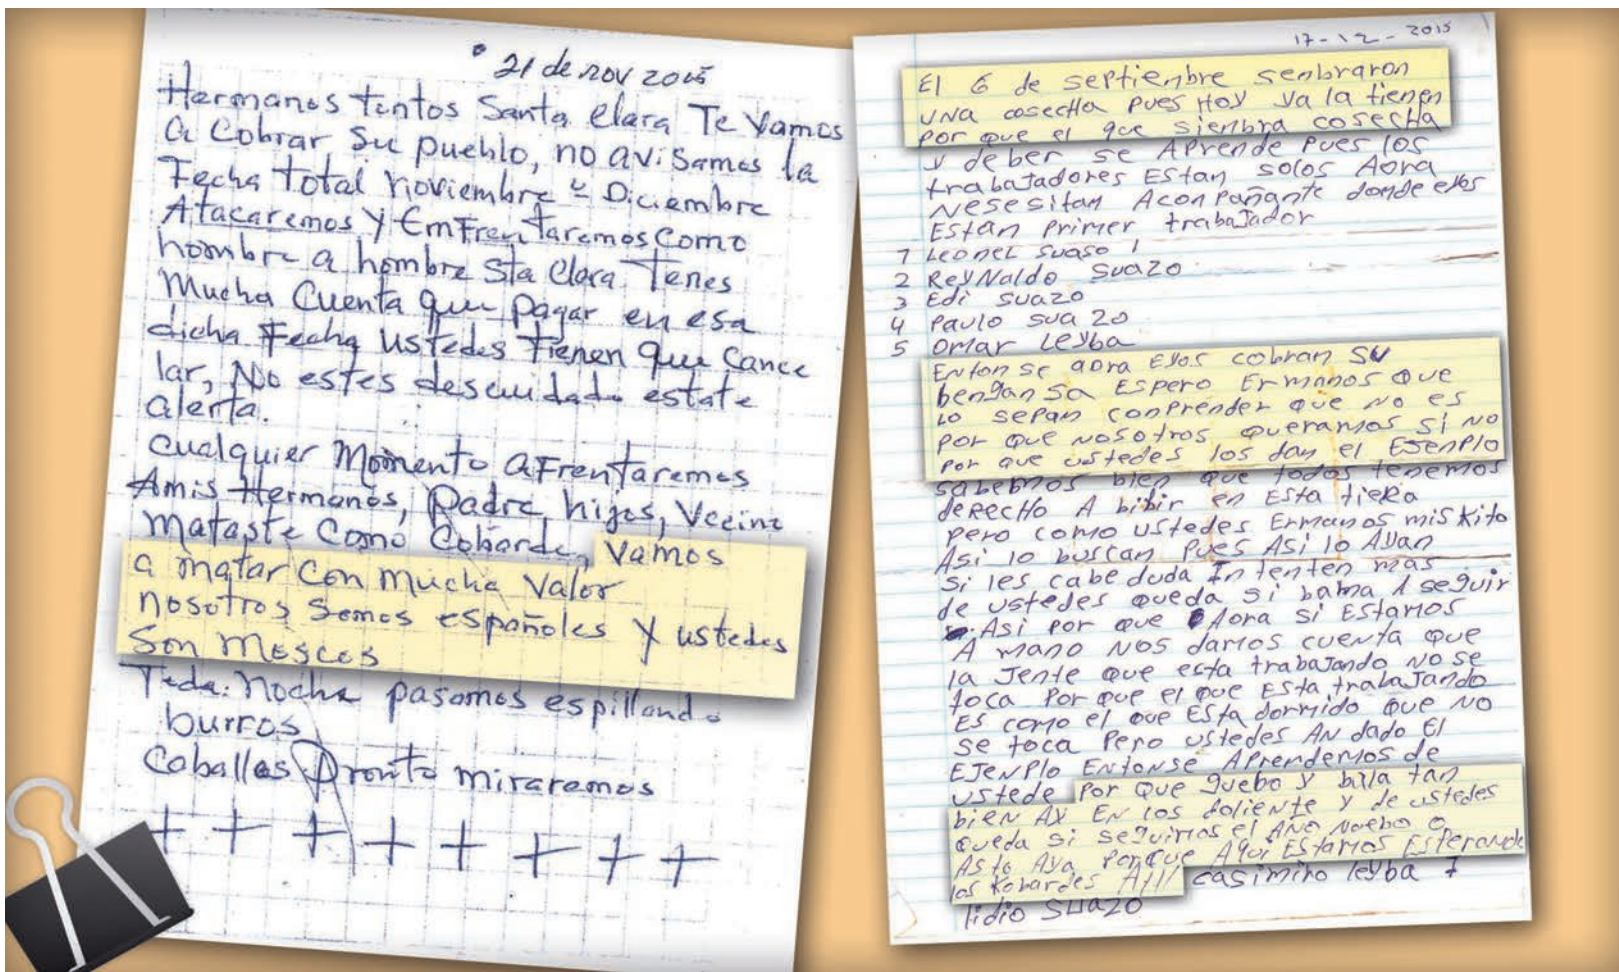 21 de nov 2015
Hermanos tontos Santa Clara Te Vamos
a Cobrar Su pueblo, no avisamos la
Fecha total noviembre - Diciembre
Atacaremos y EmFrentaremos como
hombre a hombre Sta Clara Tenes
Mucha Cuenta que pagar en esa
dicha Fecha ustedes tienen que Cance
lar, No estes descuidado estate
alerta.
Cualquier Momento aFrentaremos
Amis Hermanos, Padre, hijos, Vecino
Mataste Como Cobarde, Vamos
a matar Con mucha Valor
nosotros Somos españoles y ustedes
Son Mescos
Toda: noche pasamos espilland.
burros
Caballos Pronto miraremos
+ + + + + + + +
17-12-2015
El 6 de septiembre senbraron
una cosecHa pues Hoy ya la tienen
por que el que siembra cosecHa
y deber se Aprende pues los
trabaJadores Estan solos Aora
Nesesitan Aconpañante donde ellos
Estan Primer trabaJador
1 Leonel suaso 1
2 ReyNaldo Suazo
3 Edi suazo
4 Paulo suazo
5 Omar Leyba
Enton se aora Eyos cobran su
bengan Sa Espero Ermanos que
lo sepan conprender que no es
por que nosotros queramos si no
por que ustedes los dan el Esenplo
sabemos bien que todos tenemos
derecHo A bibir en Esta tiera
pero como ustedes Ermanos misKito
Asi lo buscan pues Asi lo Ayan
si les cabe duda Intenten mas
de ustedes queda si bama A seguir
Asi por que Aora si Estamos
A mano nos damos cuenta que
la Jente que esta trabaJando no se
toca por que el que Esta trabaJando
Es como el que Esta dormido que no
se toca Pero ustedes An dado El
EJenplo Entonse Aprendemos de
ustede por que Juebo y billa tan
bien Ax En los doliente y de ustedes
queda si seguimos el Año Nuebo o
Asta Aya porque Aqui Estamos Esperando
los Kobardes casimiro leyba 7
lidio Suazo